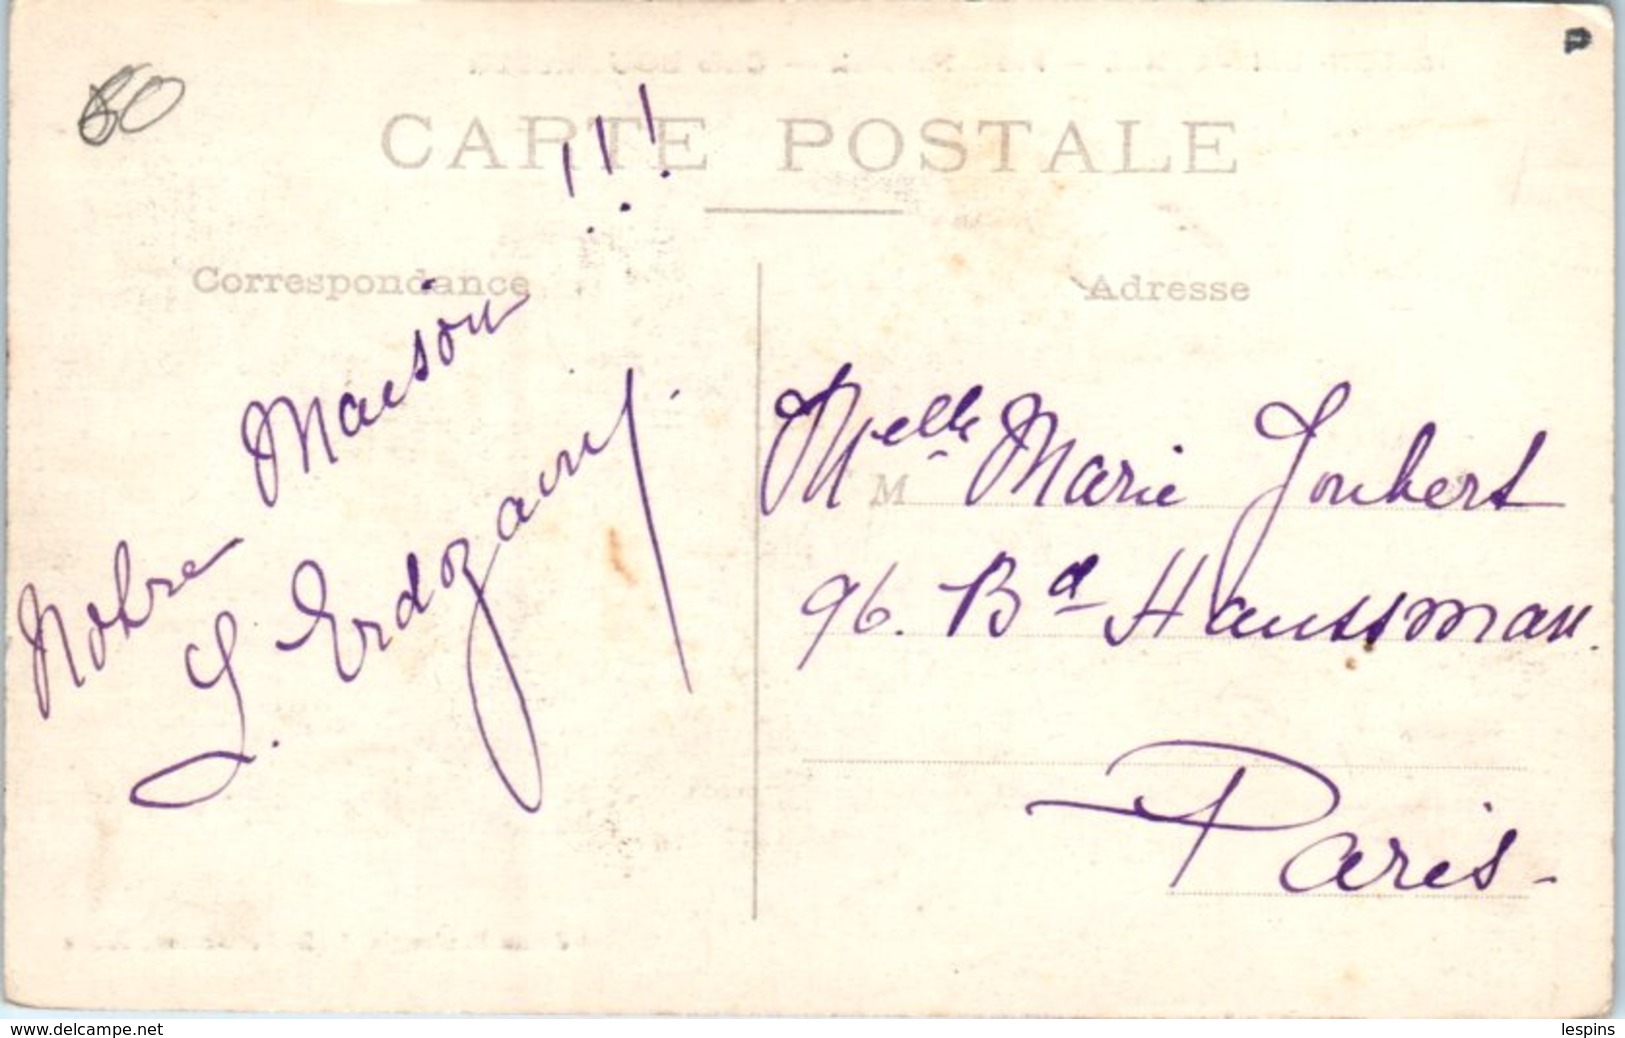 60
CARTE POSTALE
Correspondance
Notre Maison !!!
L. Erdozainy
Adresse
M
Melle Marie Joubert
96. Bd Haussman.
Paris -
www.delcampe.net
lespins